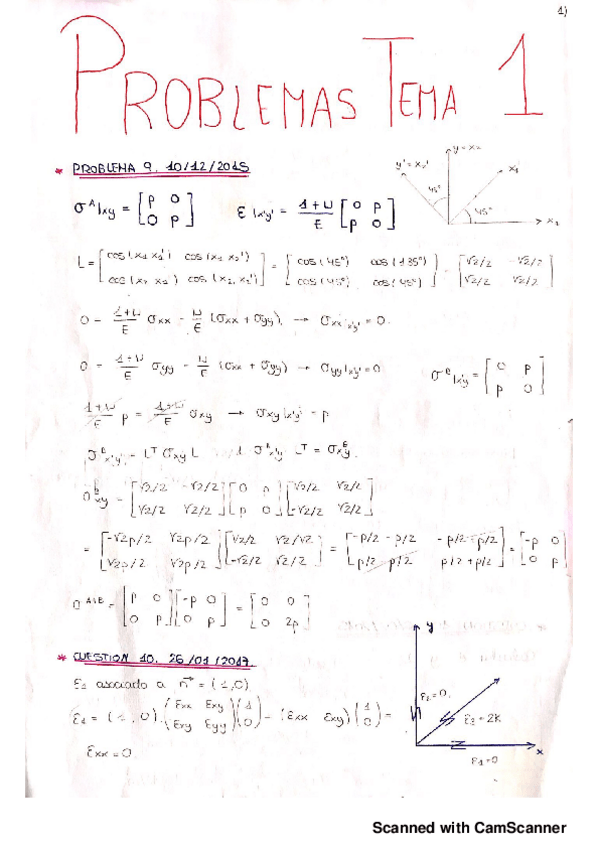 1)
PROBLEMAS TEMA 1
* PROBLEMA 9. 10/12/2015
y = x₂
y' = x₂'
x₁'
45°
45°
x₁
σᴬ|xy = [p 0; 0 p]   ε|x'y' = (1+ν)/E [0 p; p 0]
L = [cos(x₁x₁') cos(x₁x₂'); cos(x₂x₁') cos(x₂,x₂')] = [cos(45°) cos(135°); cos(45°) cos(45°)] = [√2/2 -√2/2; √2/2 √2/2]
0 = (1+ν)/E σxx - ν/E (σxx + σyy), → σxx|x'y' = 0.
0 = (1+ν)/E σyy - ν/E (σxx + σyy) → σyy|x'y' = 0   σᴮ|x'y' = [0 p; p 0]
(1+ν)/E p = (1+ν)/E σxy → σxy|x'y' = p
σᴮx'y' = Lᵀ σxy L   L σᴮx'y' Lᵀ = σᴮxy.
σᵇxy = [√2/2 -√2/2; √2/2 √2/2] [0 p; p 0] [√2/2 √2/2; -√2/2 √2/2]
= [-√2p/2 √2p/2; √2p/2 √2p/2] [√2/2 √2/2; -√2/2 √2/2] = [-p/2 - p/2 -p/2+p/2; p/2 - p/2 p/2+p/2] = [-p 0; 0 p]
σᴬ⁺ᴮ = [p 0; 0 p] [-p 0; 0 p] = [0 0; 0 2p]
* CUESTION 10. 26/01/2017.
asociado a n⃗ = (1,0)
ε₁ = (1, 0) (εxx εxy; εxy εyy) (1; 0) = (εxx εxy) (1; 0) =
εxx = 0
y
ε₂ = 0,
ε₃ = 2K
x
ε₁ = 0
Scanned with CamScanner